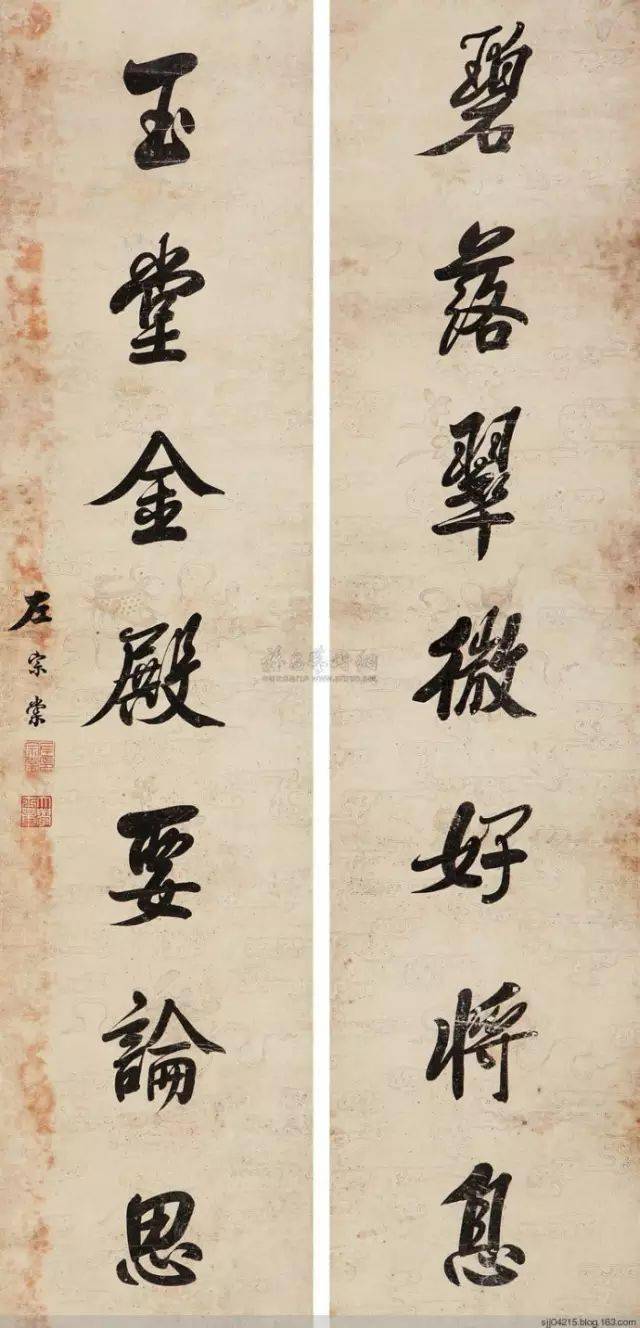 碧落翠微好將息
玉堂金殿要論思
左宗棠
sjj04215.blog.163.com